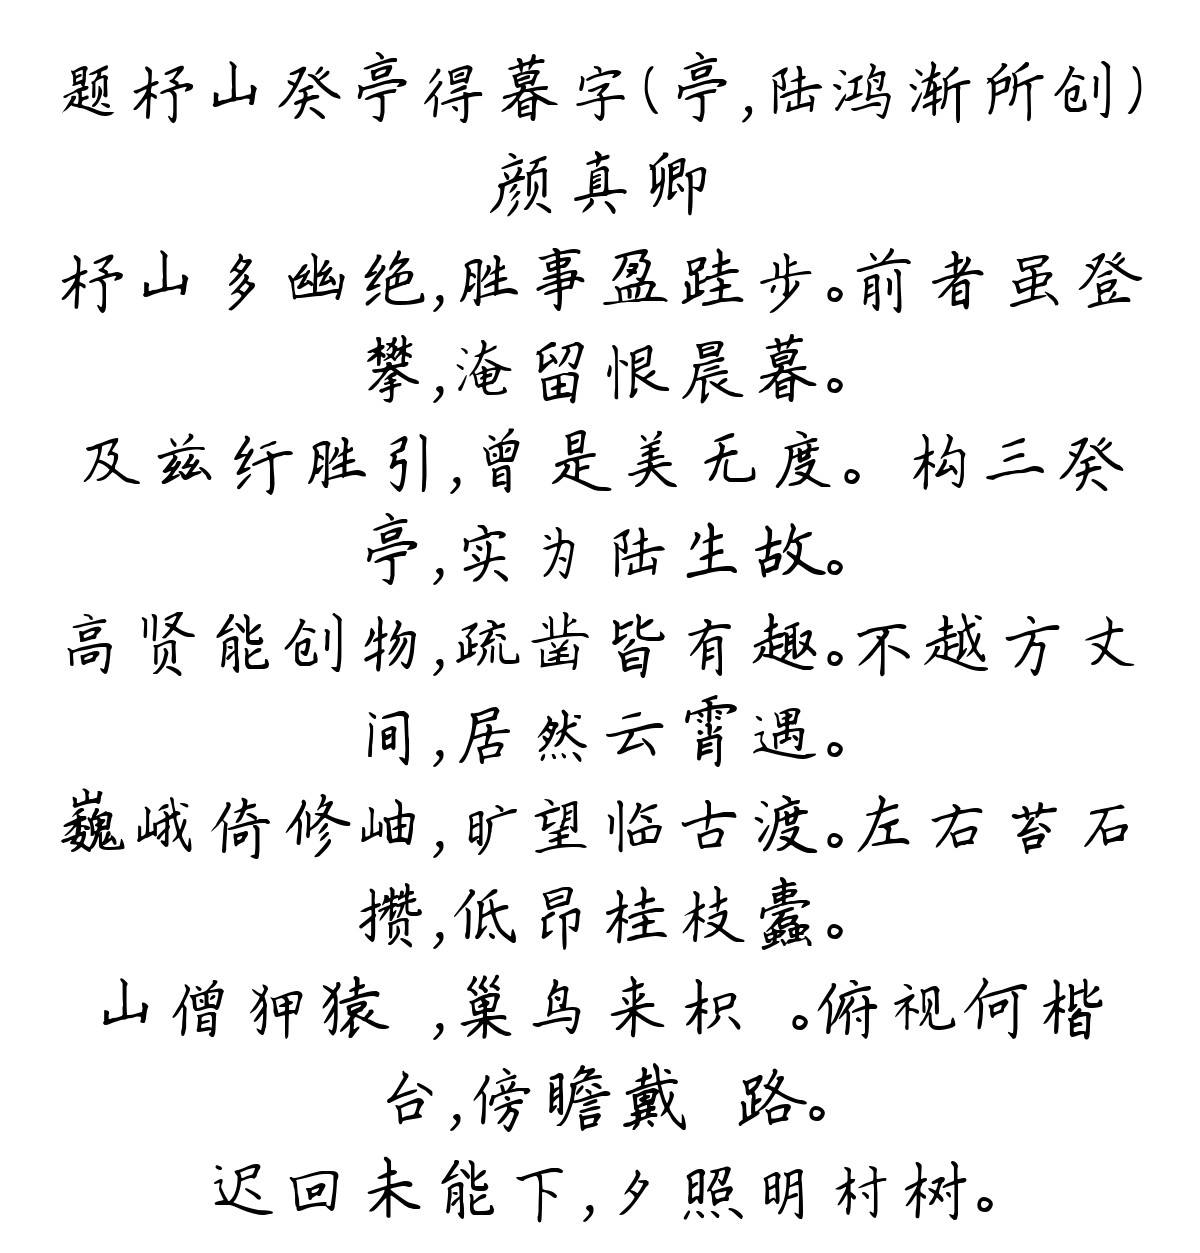 题杼山癸亭得暮字(亭,陆鸿渐所创)
颜真卿
杼山多幽绝,胜事盈跬步。前者虽登
攀,淹留恨晨暮。
及兹纡胜引,曾是美无度。构三癸
亭,实为陆生故。
高贤能创物,疏凿皆有趣。不越方丈
间,居然云霄遇。
巍峨倚修岫,旷望临古渡。左右苔石
攒,低昂桂枝蠹。
山僧狎猿 ,巢鸟来枳 。俯视何楷
台,傍瞻戴 路。
迟回未能下,夕照明村树。